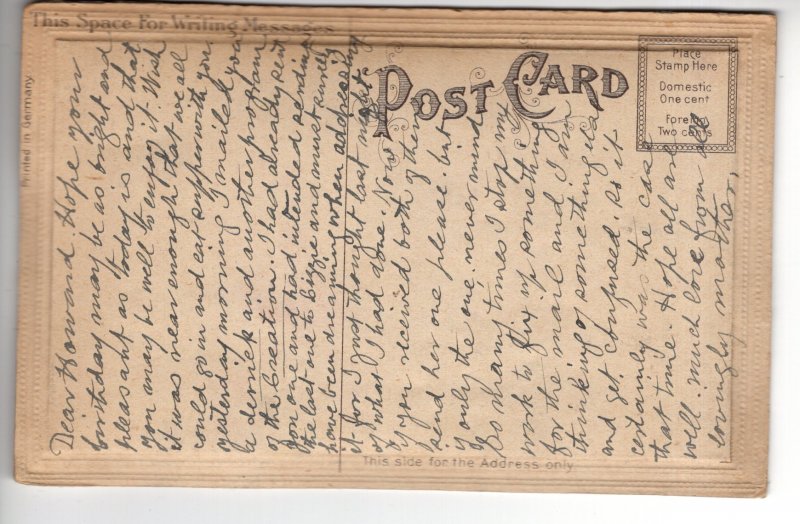 This Space For Writing Messages
Printed in Germany
POST CARD
Place
Stamp Here
Domestic
One cent
Foreign
Two cents
This side for the Address only
Dear Howard. Hope your
birthday may be as bright and
pleasant as today is and that
you may be well to enjoy it. Wish
it was near enough that we all
could go in and eat supper with you.
yesterday morning I mailed you
a derrick and another program
of the Creation. I had already sent
you one and had intended sending
the last one to Lizzie and must surely
have been dreaming when addressing
it for I not thought last night
of what I had done. Now
if you received both of them
send her one please. but
if only the one. never mind
So many times I stop my
work to fix up something
for the mail and I am
thinking of something else
and get confused, so it
certainly was the case
that time. Hope all are
well. much love from all
lovingly mother,